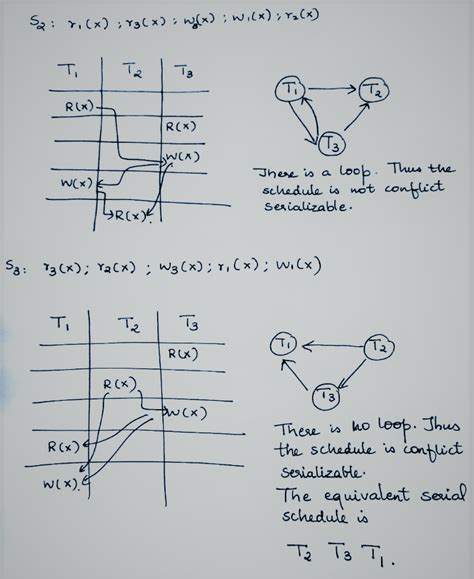 S2: r1(x) ; r3(x) ; w3(x) ; w1(x) ; r2(x)
T1 T2 T3
R(x)
R(x)
W(x)
W(x)
R(x).
T1 T2
T3
There is a loop. Thus the
schedule is not conflict
serializable.
S3: r3(x); r2(x) ; w3(x) ; r1(x) ; w1(x)
T1 T2 T3
R(x)
R(x)
W(x)
R(x)
W(x).
T1 T2
T3
There is no loop. Thus
the schedule is conflict
serializable.
The equivalent serial
schedule is
T2 T3 T1.